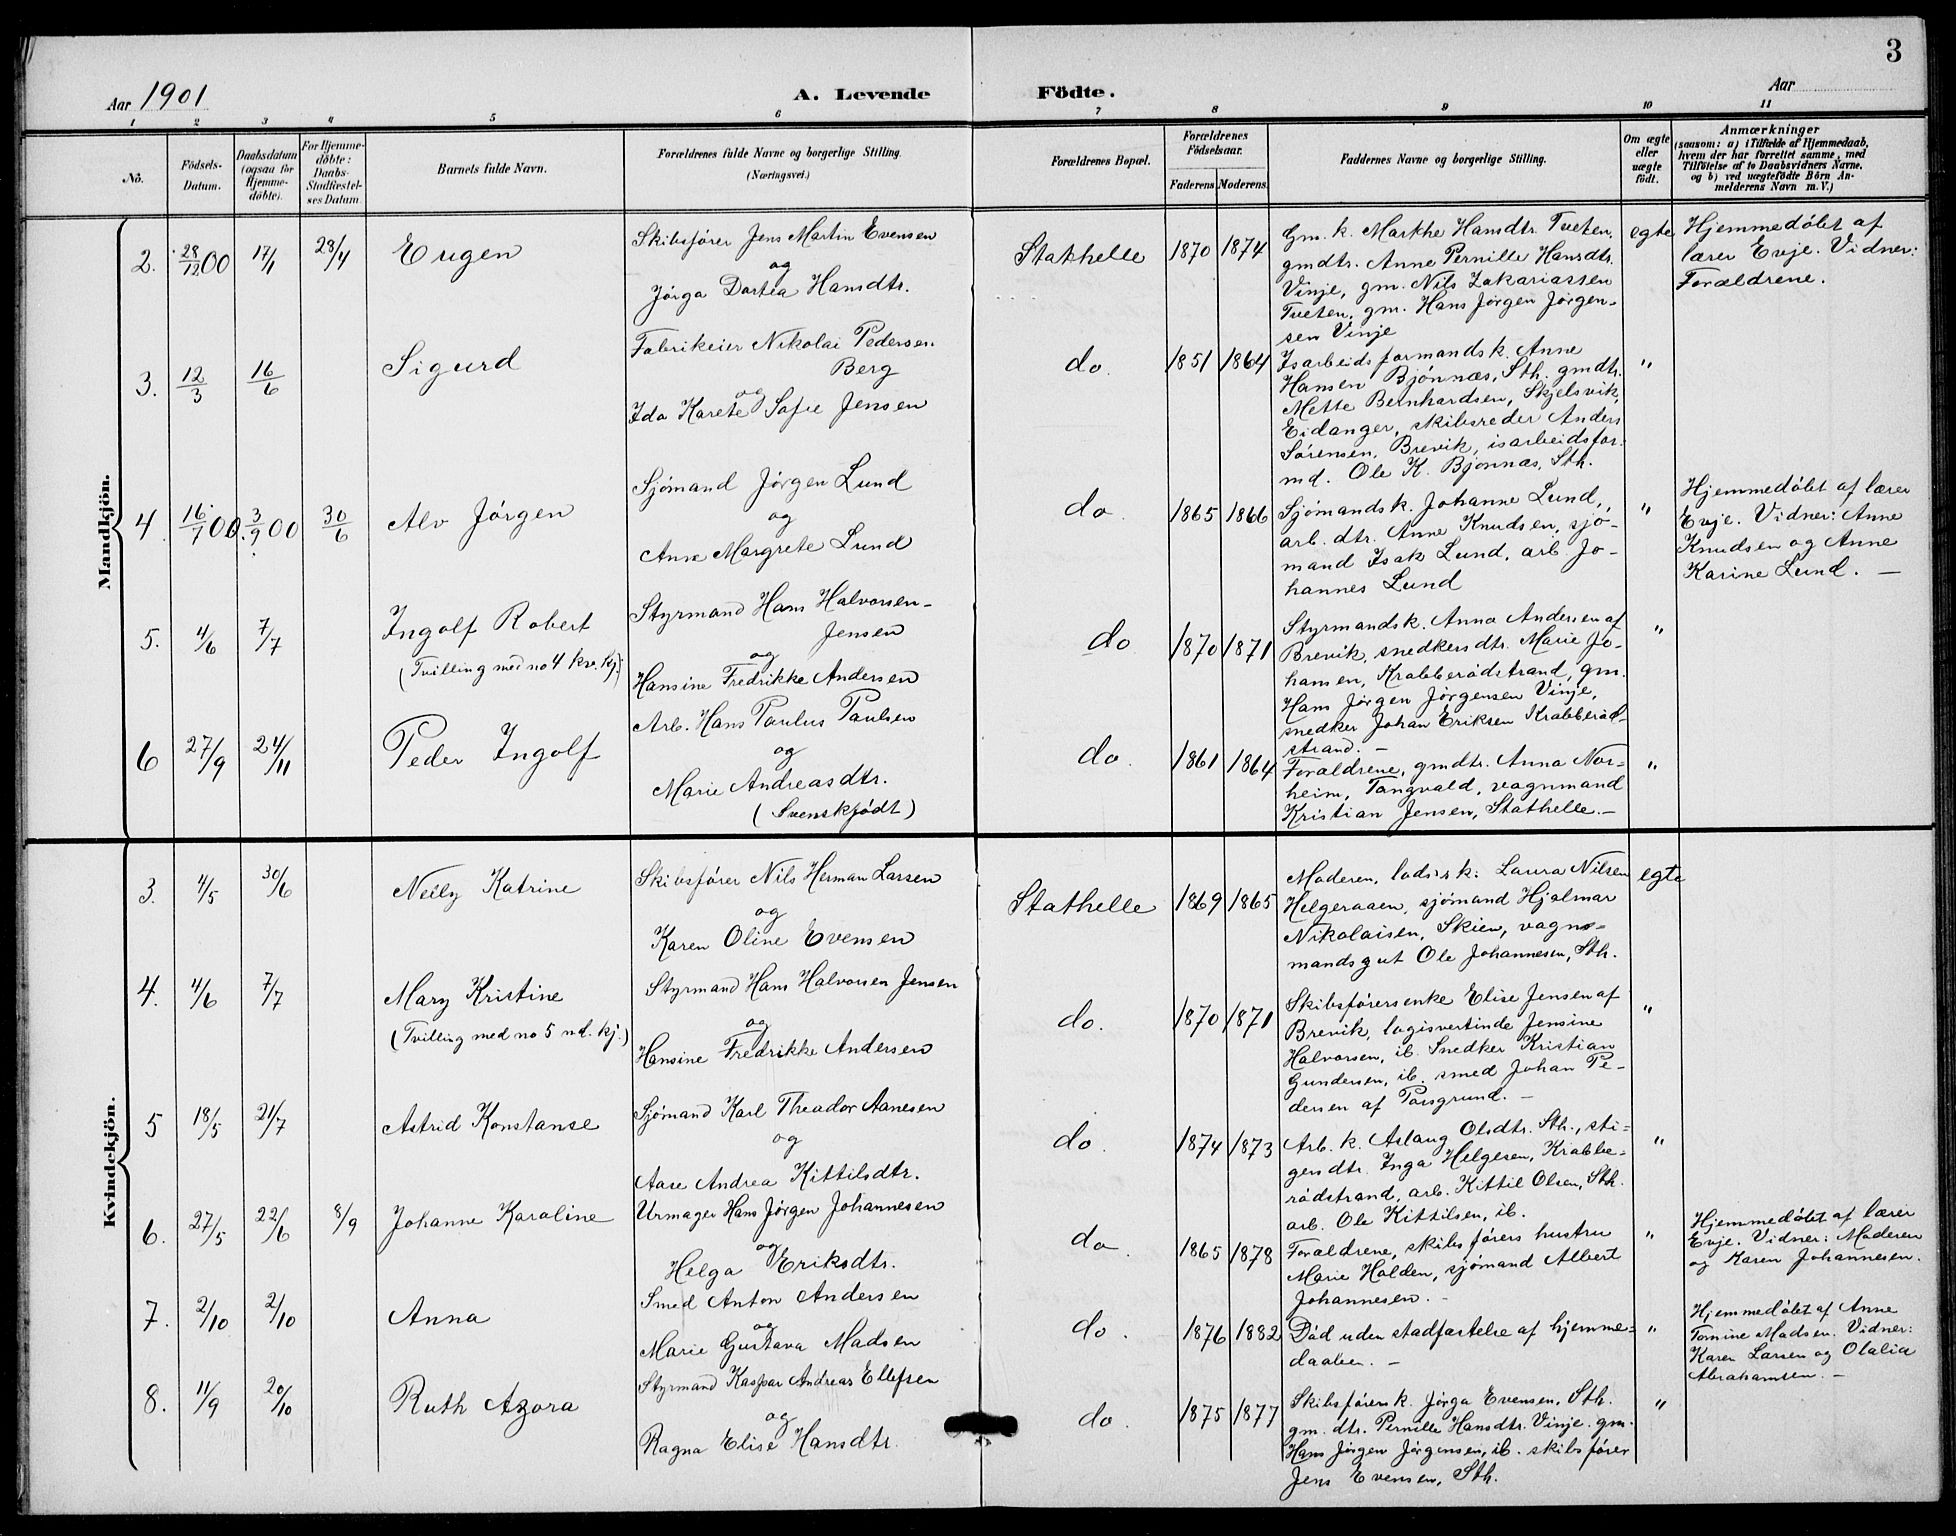 3
Aar 1901
A. Levende
Födte.
Aar
1 2 3 4 5 6 7 8 9 10 11
No.
Födsels-Datum.
Daabsdatum (ogsaa for Hjemmedöbte).
For Hjemmedöbte: Daabs-Stadfæstelses Datum.
Barnets fulde Navn.
Forældrenes fulde Navne og borgerlige Stilling.
(Næringsvei.)
Forældrenes Bopæl.
Forældrenes Födselsaar.
Faderens. Moderens.
Faddernes Navne og borgerlige Stilling.
Om ægte eller uægte födt.
Anmærkninger
(saasom: a) i Tilfælde af Hjemmedaab,
hvem der har forrettet samme, med
Tilföielse af to Daabsvidners Navne.
og b) ved uægtefödte Börn An-
melderens Navn m. V.)
Mandkjön.
2. 28/12 00 17/1 28/4 Eugen
Skibsfører Jens Martin Evensen
og
Jörga Dortea Hansdtr.
Stathelle 1870 1874
Gm. k. Marthe Hansdtr. Tveten,
gmdtr. Anne Pernille Hansdtr.
Vinje, gm. Nils Zakariassen
Tveten, gm. Hans Jörgen Jörgen-
sen Vinje
egte
Hjemmedöbt af
lærer Evje. Vidner:
Forældrene.
3. 12/3 16/6 Sigurd
Fabrikeier Nikolai Pedersen
Berg
og
Ida Karete Sofie Jensen
do. 1851 1864
Isarbeidsformands k. Anne
Hansen Bjönnæs, Sth. gmdtr.
Mette Bernhardsen, Skjelsvik,
Eidanger, skibsreder Anders
Sörensen, Brevik, isarbeidsfor-
md. Ole K. Bjönnæs, Sth.
"
4. 16/7 00. 3/9 00 30/6 Alv Jörgen
Sjömand Jörgen Lund
og
Anne Margrete Lund
do. 1865 1866
Sjömands k. Johanne Lund,
arb. dtr. Anne Knudsen, sjö-
mand Isak Lund, arb. Jo-
hannes Lund
"
Hjemmedöbt af lærer
Evje. Vidner: Anne
Knudsen og Anne
Karine Lund. —
5. 4/6 7/7 Ingolf Robert
(Tvilling med no 4 kv. kj.)
Styrmand Hans Halvorsen-
Jensen
og
Hansine Fredrikke Andersen
do 1870 1871
Styrmands k. Anna Andersen af
Brevik, snedkersdtr. Marie Jo-
hansen, Krabberödstrand, gm.
Hans Jörgen Jörgensen Vinje,
snedker Johan Eriksen Krabberöd-
strand. —
"
6 27/9 24/11 Peder Ingolf
Arb. Hans Paulus Paulsen
og
Marie Andreasdtr.
(Svenskfödt)
do. 1861 1864
Forældrene, gmdtr. Anna Nor-
heim, Tangvald, vagnmand
Kristian Jensen, Stathelle. —
"
Kvindekjön.
3. 4/5 30/6 Nelly Katrine
Skibsförer Nils Herman Larsen
og
Karen Oline Evensen
Stathelle 1869 1865
Moderen, lods k: Laura Nilsen
Helgeraaen, sjömand Hjalmar
Nikolaisen, Skien, vagn-
mandsgut Ole Johannesen, Sth.
egte
4. 4/6 7/7 Mary Kristine
(Tvilling med no 5 md. kj.)
Styrmand Hans Halvorsen Jensen
og
Hansine Fredrikke Andersen
do. 1870 1871
Skibsförersenke Elise Jensen af
Brevik, logisvertinde Jensine
Halvorsen, ib. Snedker Kristian
Gundersen, ib. smed Johan Pe-
dersen af Porsgrund. —
"
5 18/5 21/7 Astrid Konstanse
Sjömand Karl Theodor Aanesen
og
Aase Andrea Kittilsdtr.
do. 1874 1873
Arb. k. Aslaug Olsdtr. Sth., sti-
gersdtr. Inga Helgesen, Krabbe-
rödstrand, arb. Kittil Olsen, Sth.
arb. Ole Kittilsen, ib.
"
6. 27/5 22/6 8/9 Johanne Karoline
Urmager Hans Jörgen Johannesen
og
Helga Eriksdtr.
do. 1865 1878
Forældrene, skibsförers hustru
Marie Halden, sjömand Albert
Johannesen. —
"
Hjemmedöbt af lærer
Evje. Vidner: Moderen
og Karen Johannesen.
7. 2/10 2/10 Anna
Smed Anton Andersen
og
Marie Gustava Madsen
do. 1876 1882
Död uden stadfæstelse af hjemme-
daaben. —
"
Hjemmedöbt af Anne
Tomine Madsen. Vidner:
Karen Larsen og Olalia
Abrahamsen. —
8. 11/9 20/10 Ruth Azora
Styrmand Kaspar Andreas Ellefsen
og
Ragna Elise Hansdtr.
do. 1875 1877
Skibsförers k. Jörga Evensen, Sth.
gm. dtr. Pernille Hansdtr. Vinje. gm.
Hans Jörgen Jörgensen, ib. skibsförer
Jens Evensen, Sth.
"